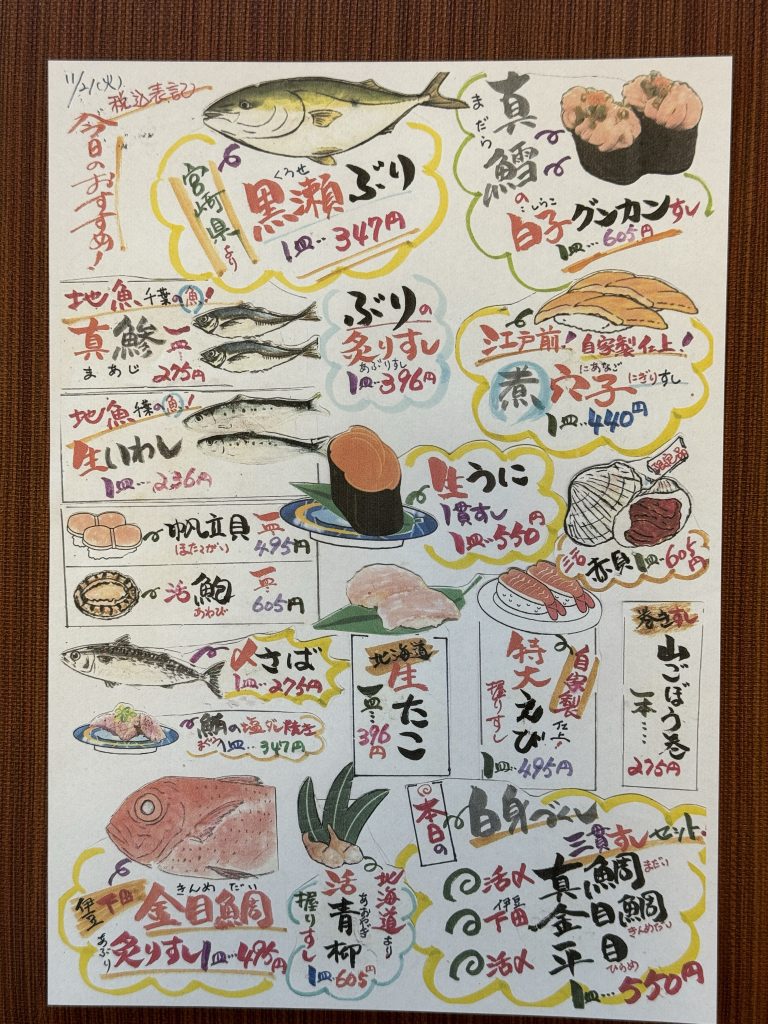 11/21(火)
税込表記
今日のおすすめ!
宮崎県より
くろせ
黒瀬ぶり
1皿…347円
まだら
真鱈の
しらこ
白子グンカンすし
1皿…605円
地魚千葉の魚!
真鯵一皿…
まあじ 275円
ぶりの
炙りすし
あぶりすし
1皿…396円
江戸前!自家製仕上!
にあなご
煮穴子にぎりすし
1皿…440円
地魚千葉の魚!
生いわし
1皿…236円
生うに
1貫すし
1皿…550円
限定品
活赤貝1皿…605円
帆立貝 一皿…
ほたてがい 495円
活鮑 一皿…
あわび 605円
〆さば
1皿…275円
鮪の塩ダレ焼き
まぐろ 1皿…347円
北海道
生たこ
一皿…396円
特大えび
握りすし
自家製仕上!
1皿…495円
巻きすし
山ごぼう巻
一本……
275円
伊豆下田
きんめだい
金目鯛
あぶり
炙りすし1皿…495円
北海道より
あおやぎ
活青柳
握りすし
1皿…605円
本日の
白身づくし
三貫すしセット.
活〆 真鯛 まだい
伊豆
下田 金目鯛 きんめだい
活〆 平目 ひらめ
1皿…550円